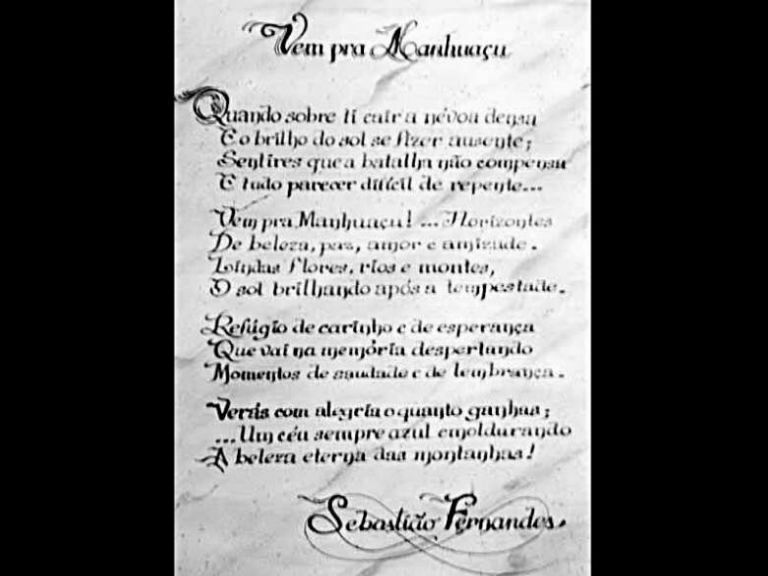 Vem pra Manhuaçu
Quando sobre ti cair a névoa densa
E o brilho do sol se fizer ausente;
Sentires que a batalha não compensa
E tudo parecer difícil de repente...
Vem pra Manhuaçu! ... Horizontes
De beleza, paz, amor e amizade.
Lindas flores, rios e montes,
O sol brilhando após a tempestade.
Refúgio de carinho e de esperança
Que vai na memória despertando
Momentos de saudade e de lembrança.
Verás com alegria o quanto ganhas;
...Um céu sempre azul emoldurando
A beleza eterna das montanhas!
Sebastião Fernandes.